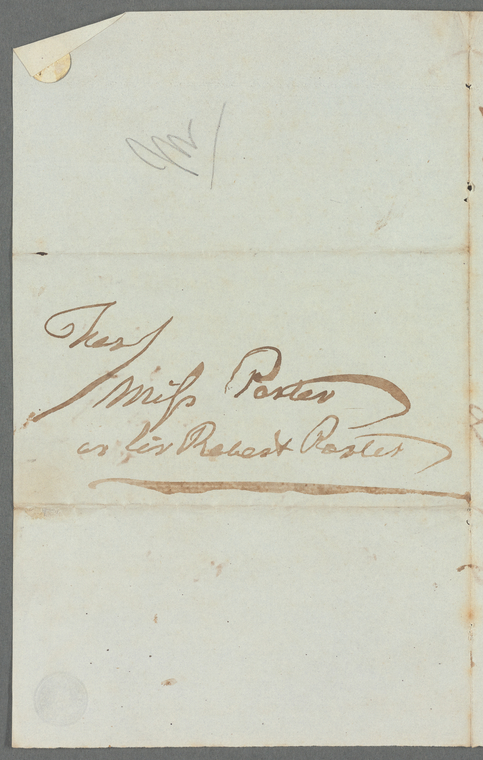 Miss Porter
or Sir Robert Porter